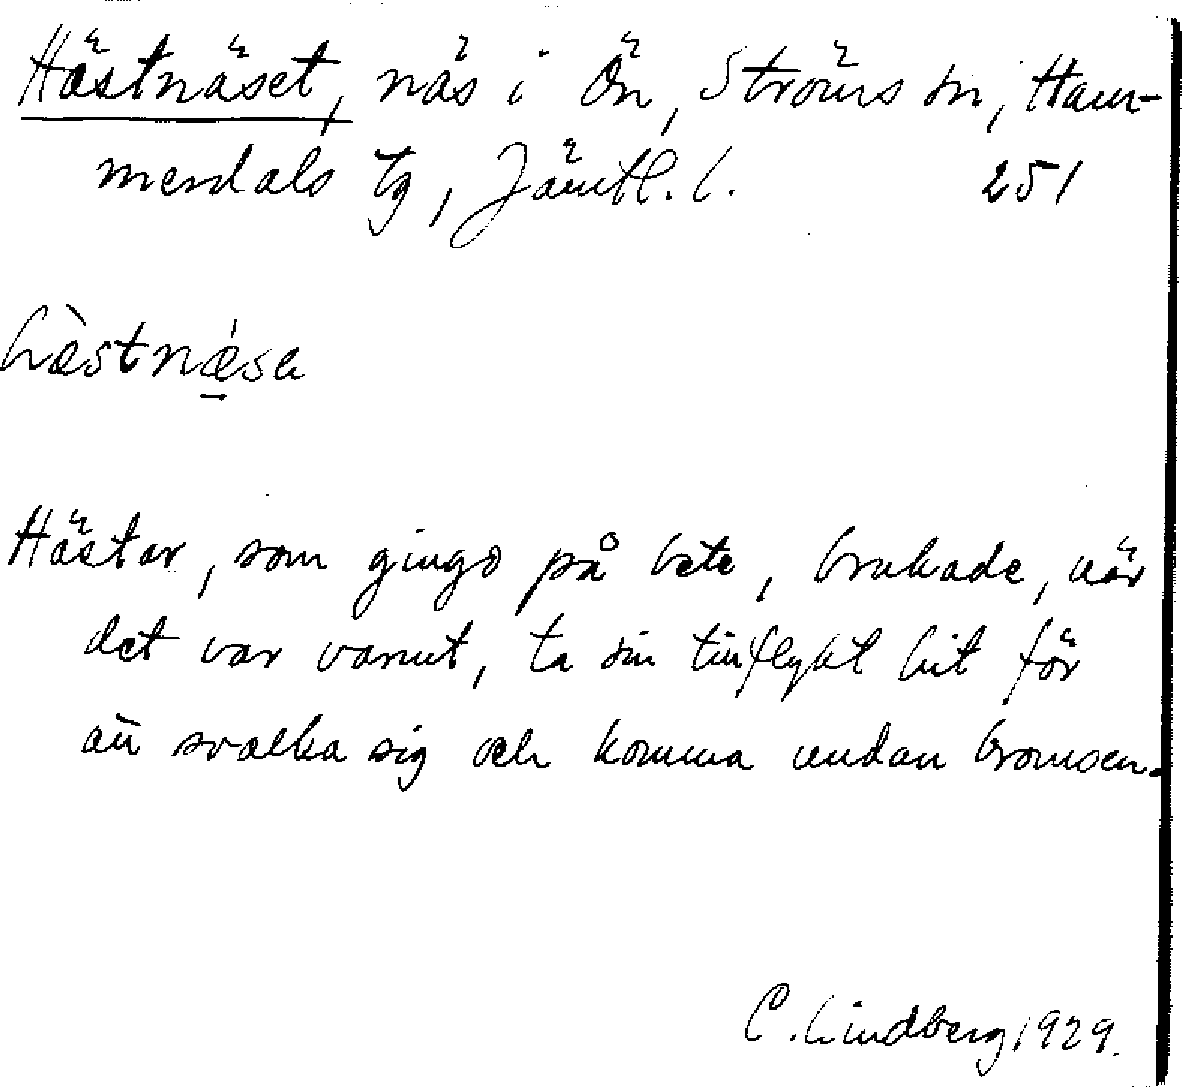 Hästnäset, näs i Ön, Ströms sn, Ham-
merdals tg, Jämtl. l. 251
hæ̀stnǽ̠sa
Hästar, som gingo på bete, brukade, när
det var varmt, ta sin tillflykt hit för
att svalka sig och komma undan bromsen.
C. Lindberg 1929.